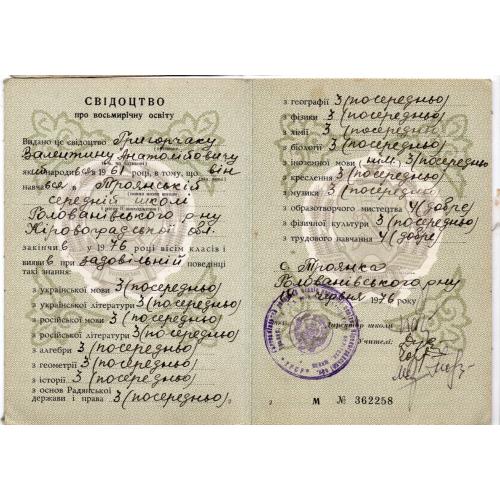 СВІДОЦТВО
про восьмирічну освіту
Видано це свідоцтво Григорчаку
Валентину Анатолійовичу
який народився 1961 року, в тому, що він
навчався в Троянській
середній школі
Голованівського р-ну
Кіровоградської обл.
закінчив у 1976 році вісім класів і
виявив при задовільній поведінці
такі знання:
з української мови 3 (посередньо)
з української літератури 3 (посередньо)
з російської мови 3 (посередньо)
з російської літератури 3 (посередньо)
з алгебри 3 (посередньо)
з геометрії 3 (посередньо)
з історії 3 (посередньо)
з основ Радянської
держави і права 3 (посередньо)
з географії 3 (посередньо)
з фізики 3 (посередньо)
з хімії 3 (посередньо)
з біології 3 (посередньо)
з іноземної мови нім. 3 (посередньо)
з креслення 3 (посередньо)
з музики 3 (посередньо)
з образотворчого мистецтва 4 (добре)
з фізичної культури 3 (посередньо)
з трудового навчання 4 (добре)
с. Троянка
Голованівського р-ну
червня 1976 року
Директор школи
Учителі:
2
М № 362258